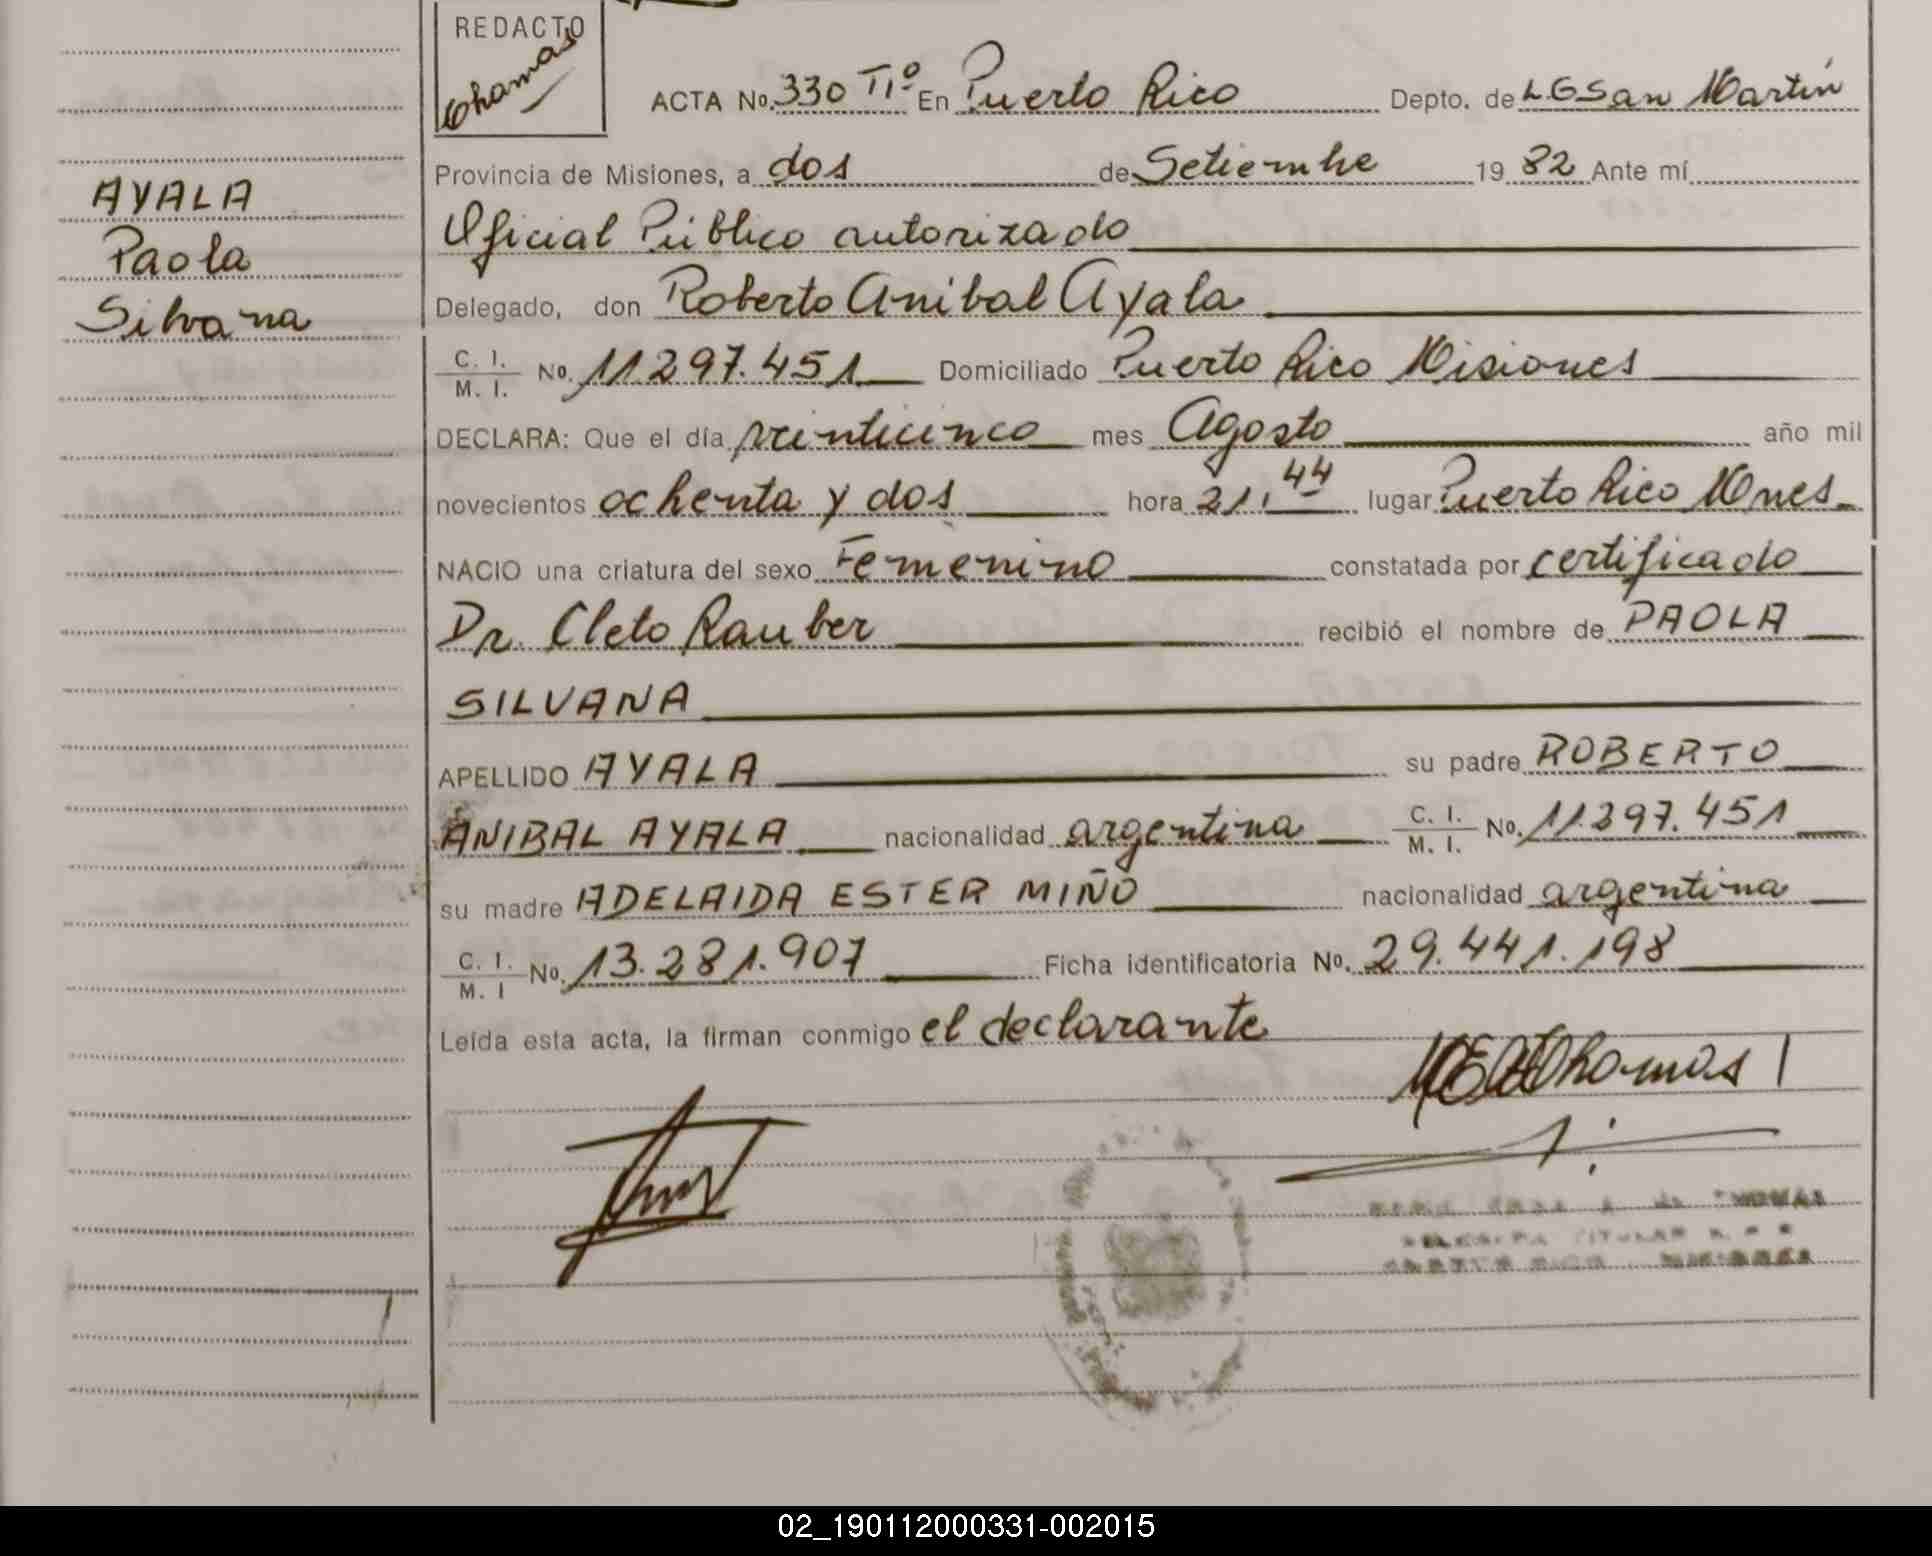 REDACTO
Thomas
ACTA No. 330 Tº1º En Puerto Rico Depto. de LGSan Martín
AYALA
Paola
Silvana
Provincia de Misiones, a dos de Setiembre 19 82 Ante mí
Oficial Público autorizado
Delegado, don Roberto Anibal Ayala
C. I. / M. I. No. 11.297.451 Domiciliado Puerto Rico Misiones
DECLARA: Que el día veinticinco mes Agosto año mil
novecientos ochenta y dos hora 21,44 lugar Puerto Rico Mnes
NACIO una criatura del sexo Femenino constatada por certificado
Dr. Cleto Rauber recibió el nombre de PAOLA
SILVANA
APELLIDO AYALA su padre ROBERTO
ANIBAL AYALA nacionalidad argentina C. I. / M. I. No. 11.297.451
su madre ADELAIDA ESTER MIÑO nacionalidad argentina
C. I. / M. I No. 13.281.907 Ficha identificatoria No. 29.441.198
Leída esta acta, la firman conmigo el declarante
Thomas
02_190112000331-002015